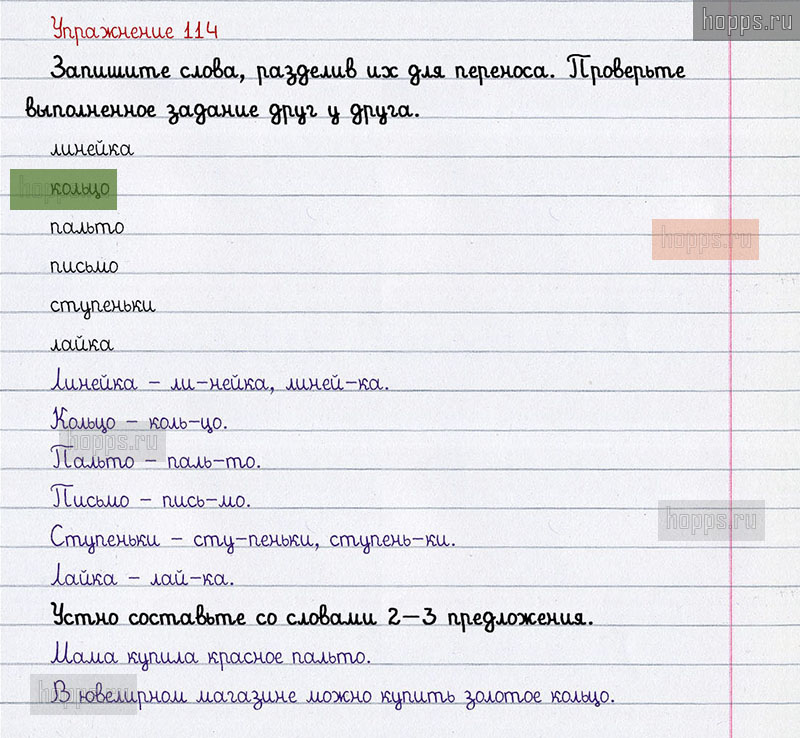 hopps.ru
Упражнение 114
Запишите слова, разделив их для переноса. Проверьте
выполненное задание друг у друга.
линейка
hopps.ru
кольцо
пальто
hopps.ru
письмо
ступеньки
лайка
Линейка – ли-нейка, линей-ка.
Кольцо – коль-цо.
hopps.ru
Пальто – паль-то.
Письмо – пись-мо.
hopps.ru
Ступеньки – сту-пеньки, ступень-ки.
Лайка – лай-ка.
Устно составьте со словами 2–3 предложения.
Мама купила красное пальто.
hopps.ru
В ювелирном магазине можно купить золотое кольцо.